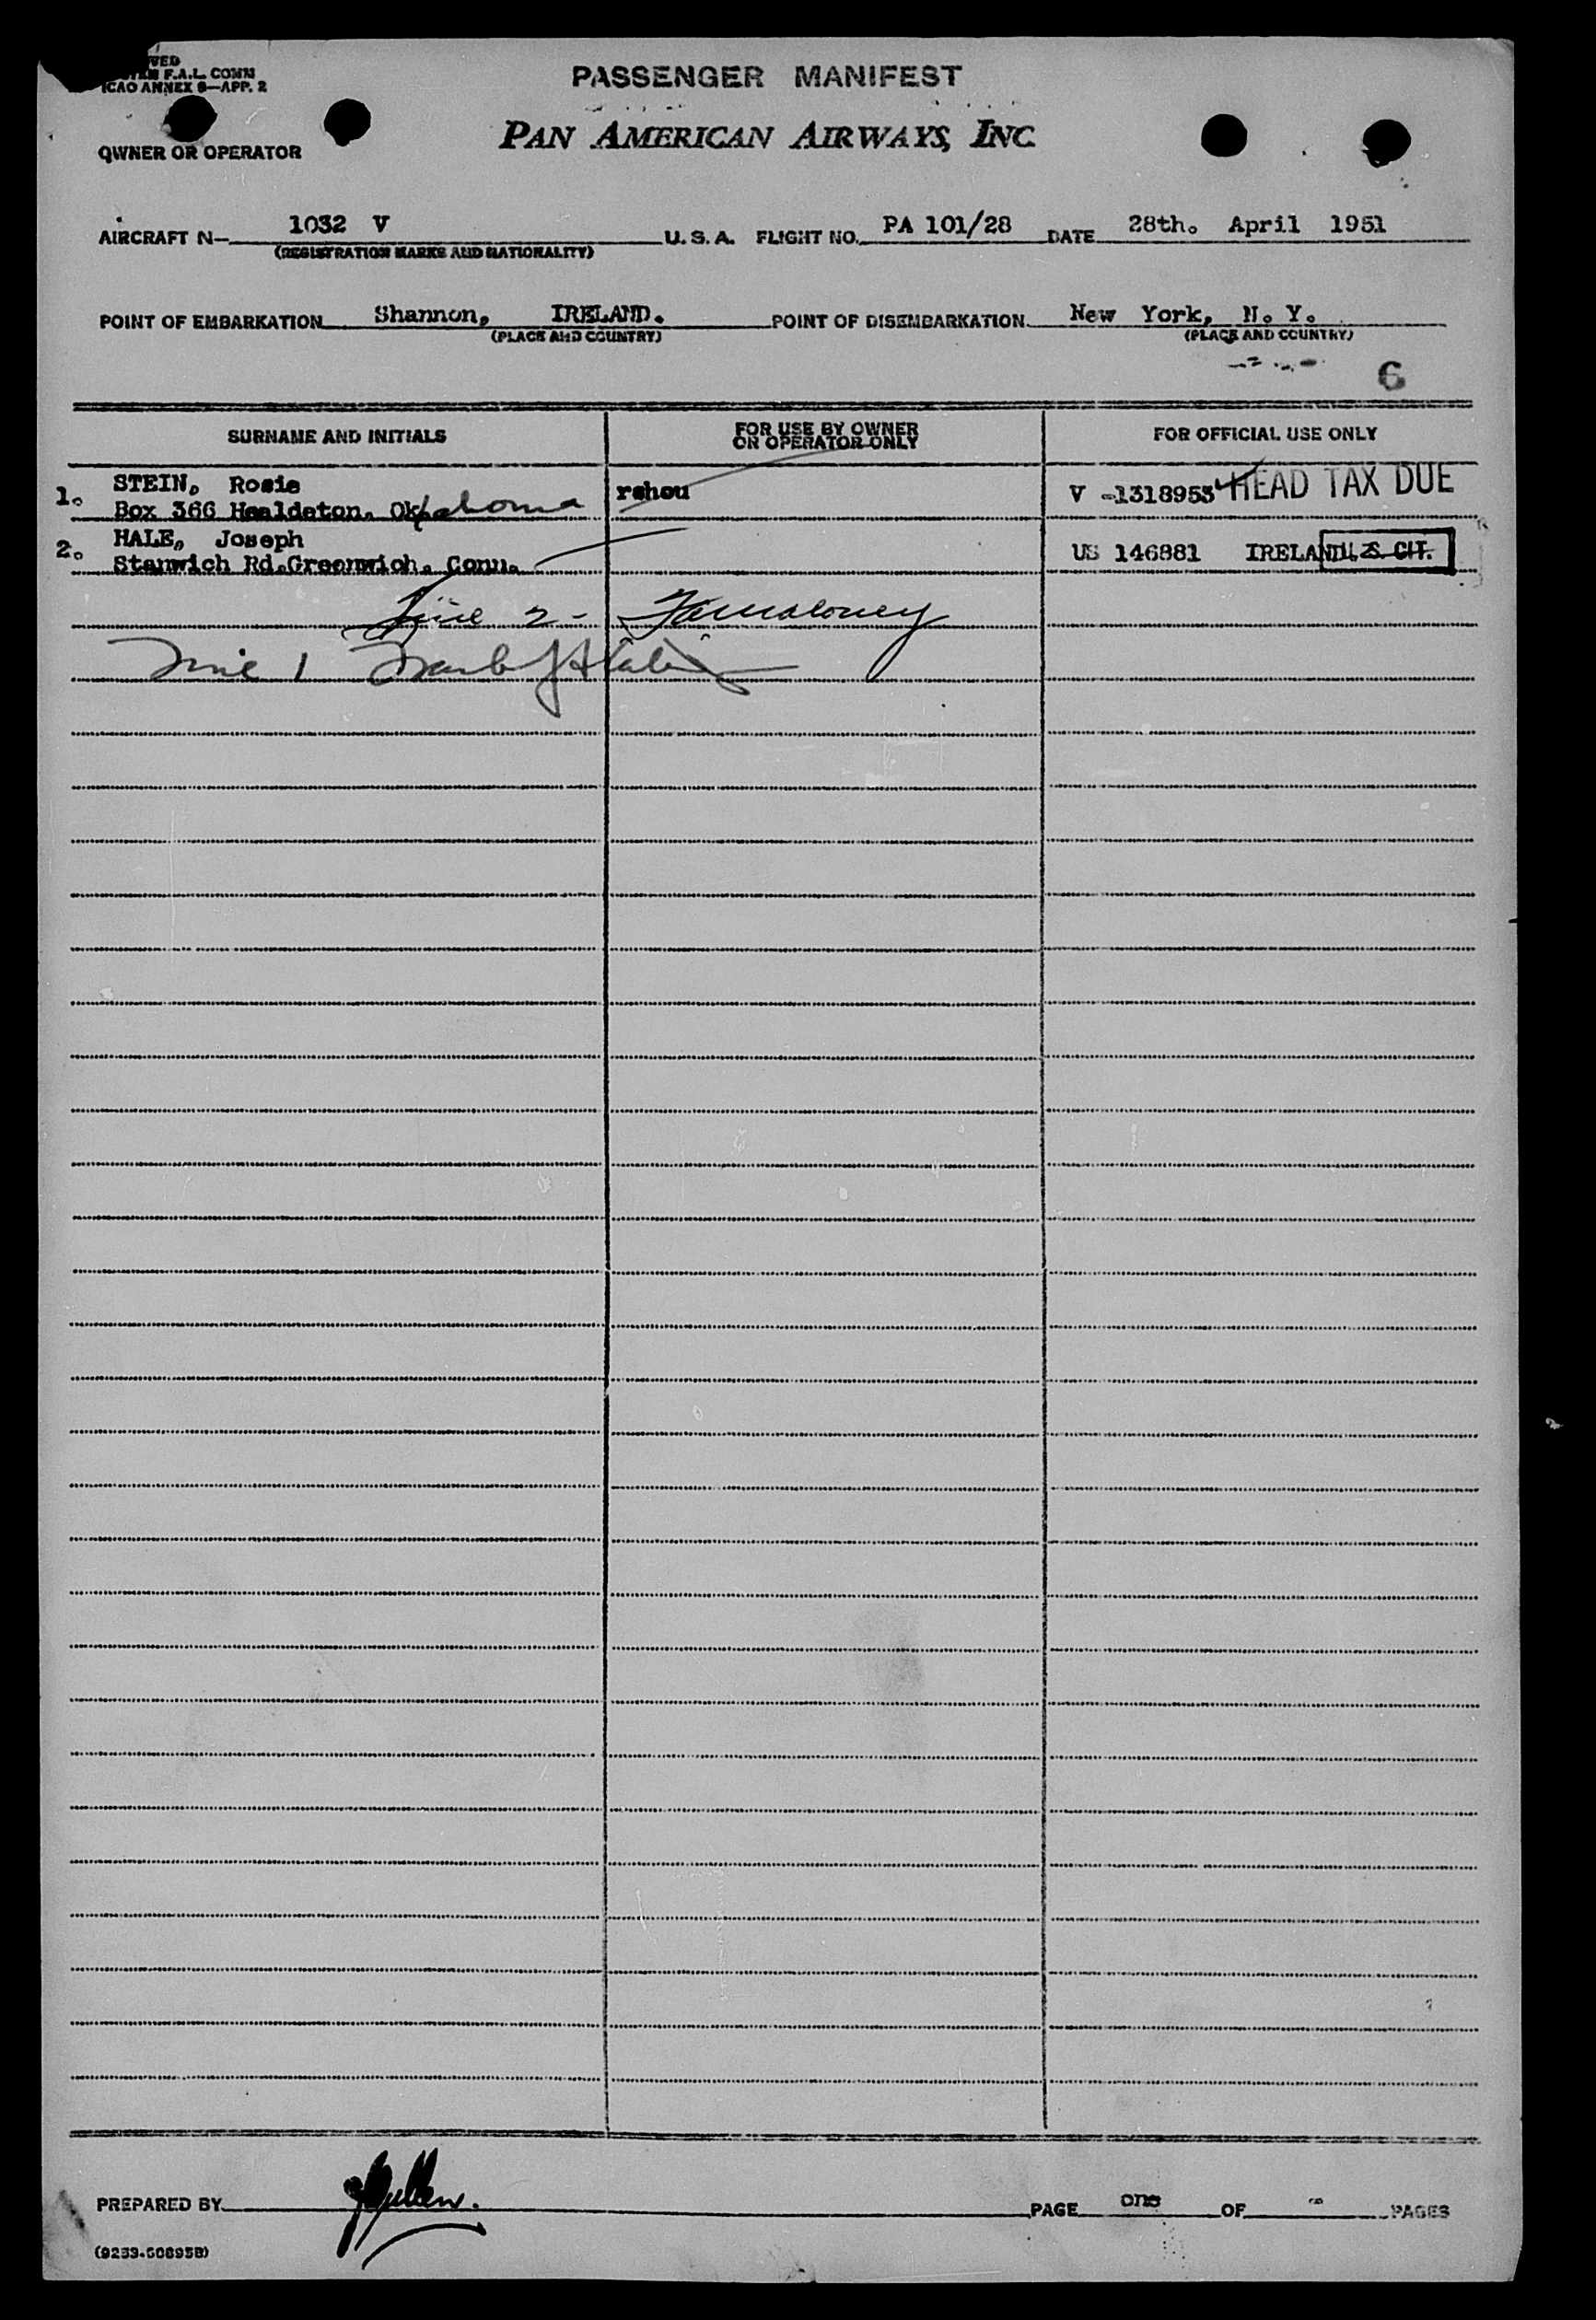 F.A.L. COMM
ICAO ANNEX 9—APP. 2
PASSENGER MANIFEST
PAN AMERICAN AIRWAYS, INC.
OWNER OR OPERATOR
AIRCRAFT N— 1032 V U. S. A. FLIGHT NO. PA 101/28 DATE 28th. April 1951
(REGISTRATION MARKS AND NATIONALITY)
POINT OF EMBARKATION Shannon, IRELAND. POINT OF DISEMBARKATION New York, N. Y.
(PLACE AND COUNTRY) (PLACE AND COUNTRY)
6
SURNAME AND INITIALS FOR USE BY OWNER OR OPERATOR ONLY FOR OFFICIAL USE ONLY
1. STEIN, Rosie rshou V -1318953 HEAD TAX DUE
Box 366 Healdeton, Oklahoma
2. HALE, Joseph US 146881 IRELAND U. S. CIT.
Stanwich Rd.Greenwich, Conn.
Line 2 -
Line 1 Frank J
PREPARED BY PAGE one OF - PAGES
(9253-50895B)